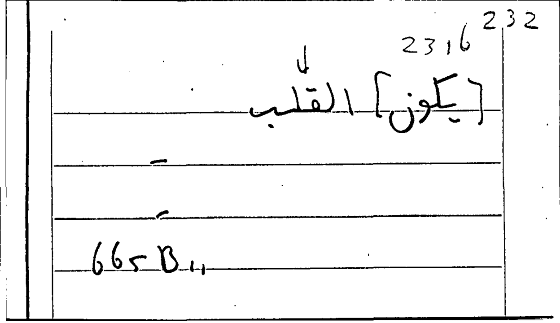 232
23,6
[يكون] القلب
665 B,,